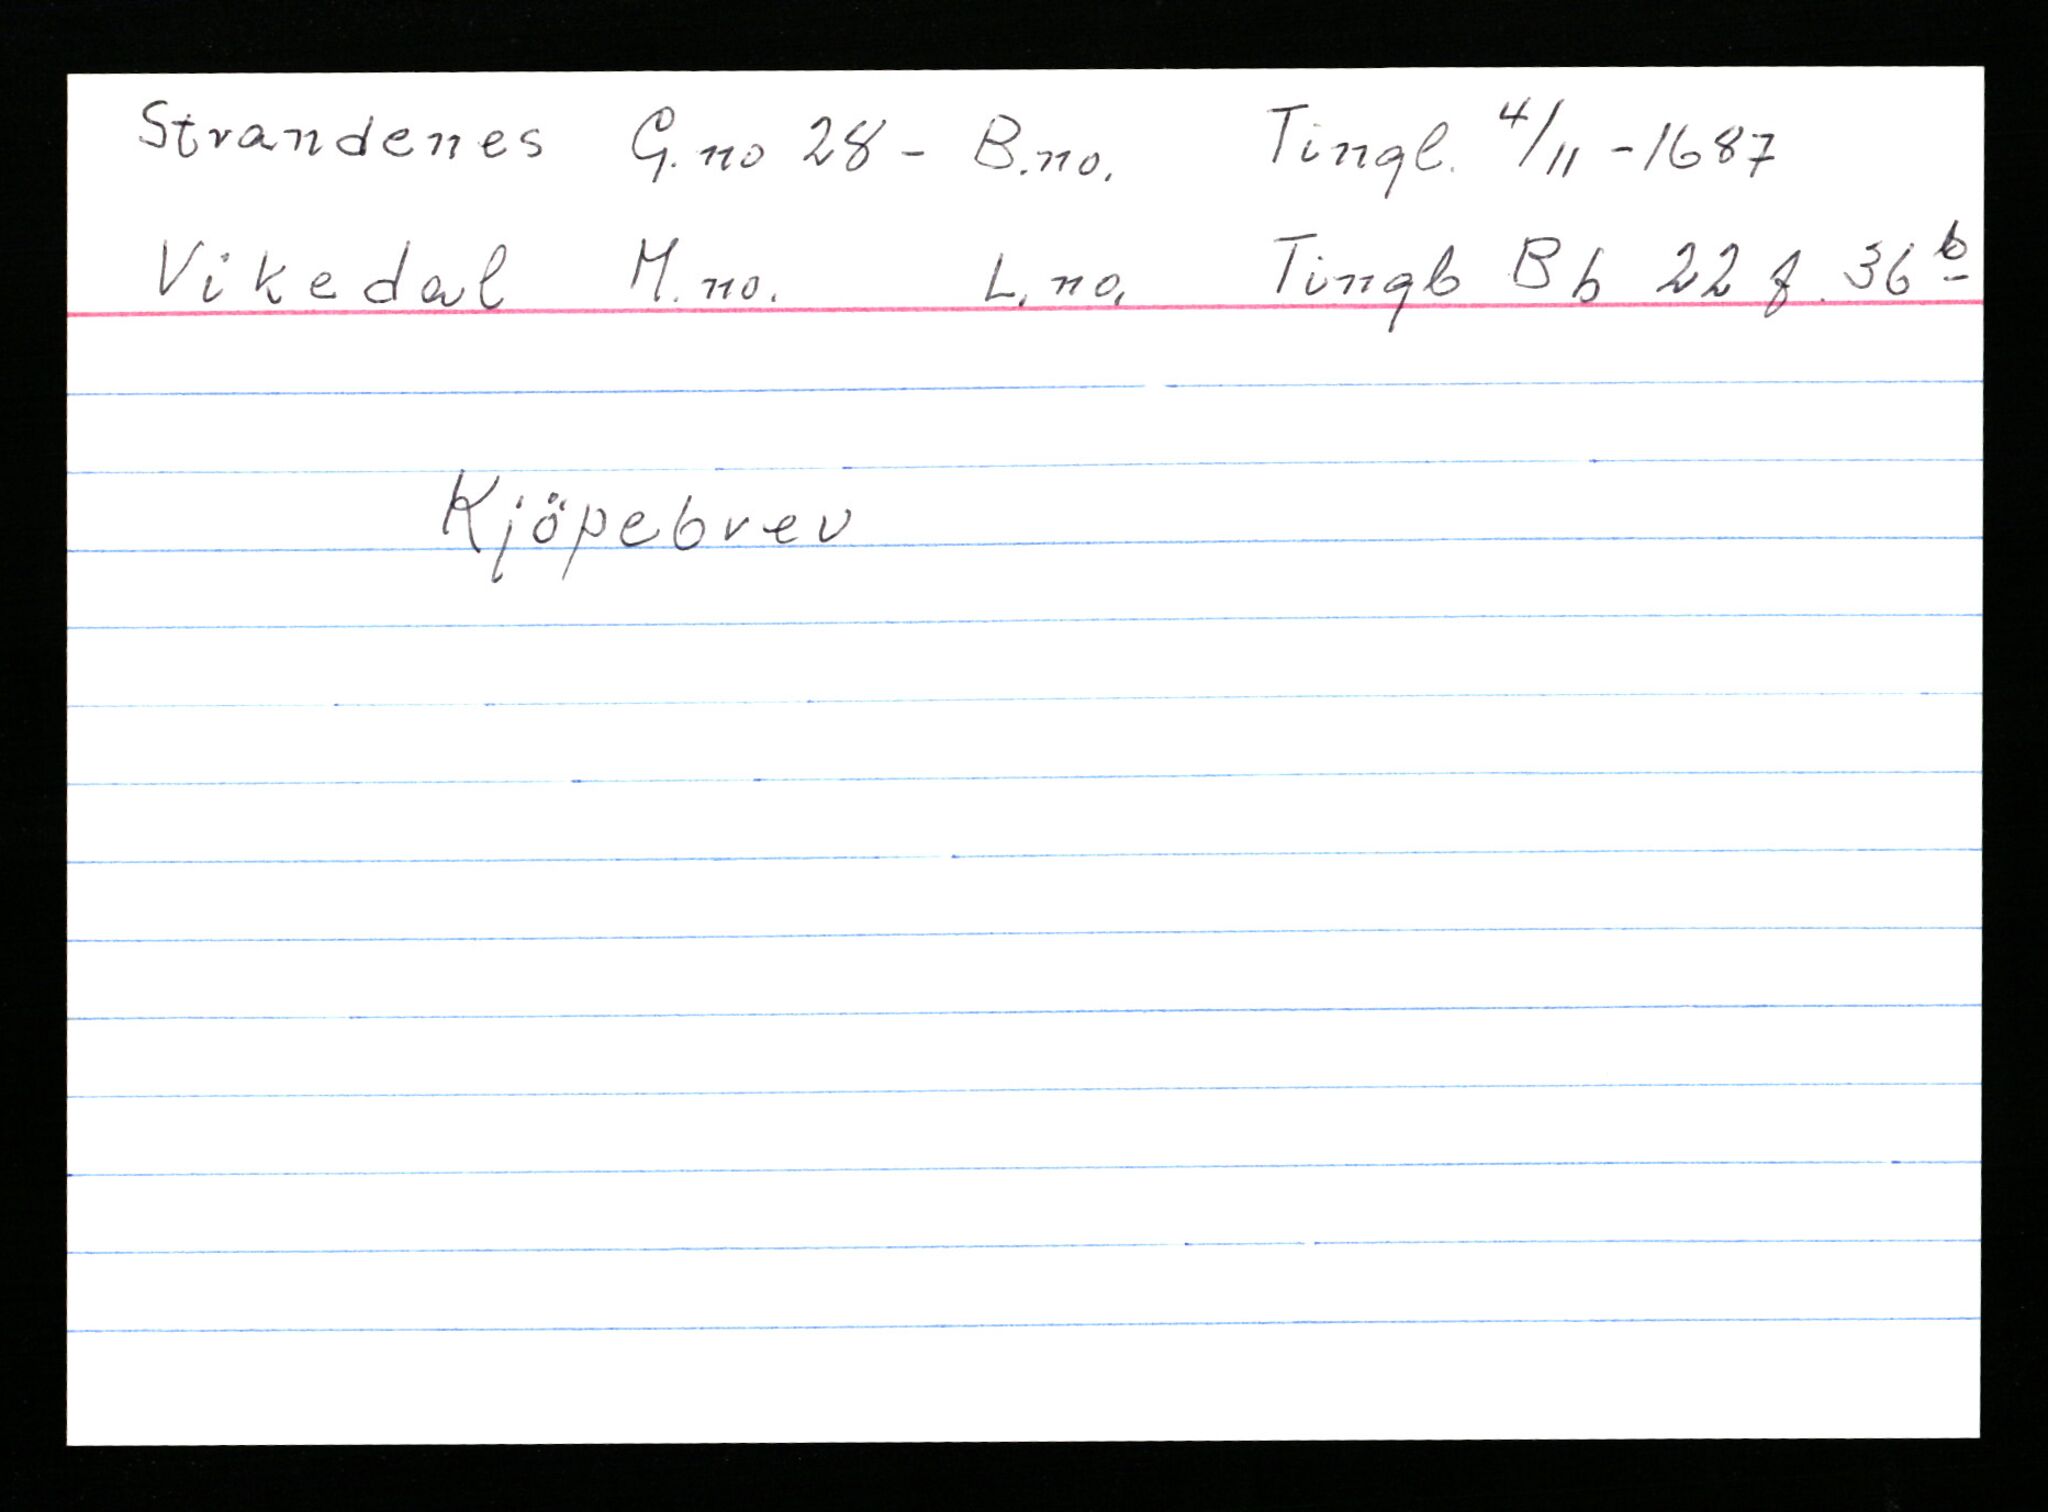 Strandenes G.no 28 - B.no. Tingl. 4/11 - 1687
Vikedal M.no. L.no. Tingb Bb 22 f. 36b
Kjöpebrev